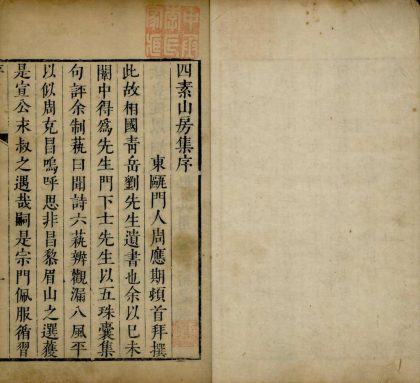 四素山房集序
東甌門人周應期頓首拜撰
此故相國靑岳劉先生遺書也余以巳未
闈中得爲先生門下士先生以五珠囊集
句評余制萟曰聞詩六萟辨觀漏八風平
以似周克昌嗚呼思非昌黎眉山之選獲
是宣公永叔之遇哉嗣是宗門佩服循習